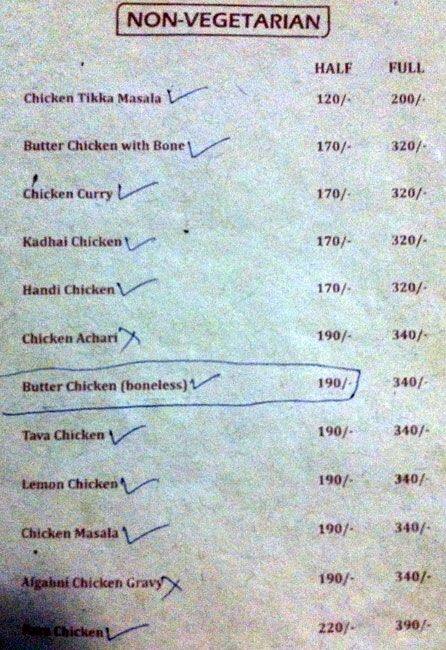 NON-VEGETARIAN
HALF FULL
Chicken Tikka Masala 120/- 200/-
Butter Chicken with Bone 170/- 320/-
Chicken Curry 170/- 320/-
Kadhai Chicken 170/- 320/-
Handi Chicken 170/- 320/-
Chicken Achari 190/- 340/-
Butter Chicken (boneless) 190/- 340/-
Tava Chicken 190/- 340/-
Lemon Chicken 190/- 340/-
Chicken Masala 190/- 340/-
Afgahni Chicken Gravy 190/- 340/-
Chicken 220/- 390/-